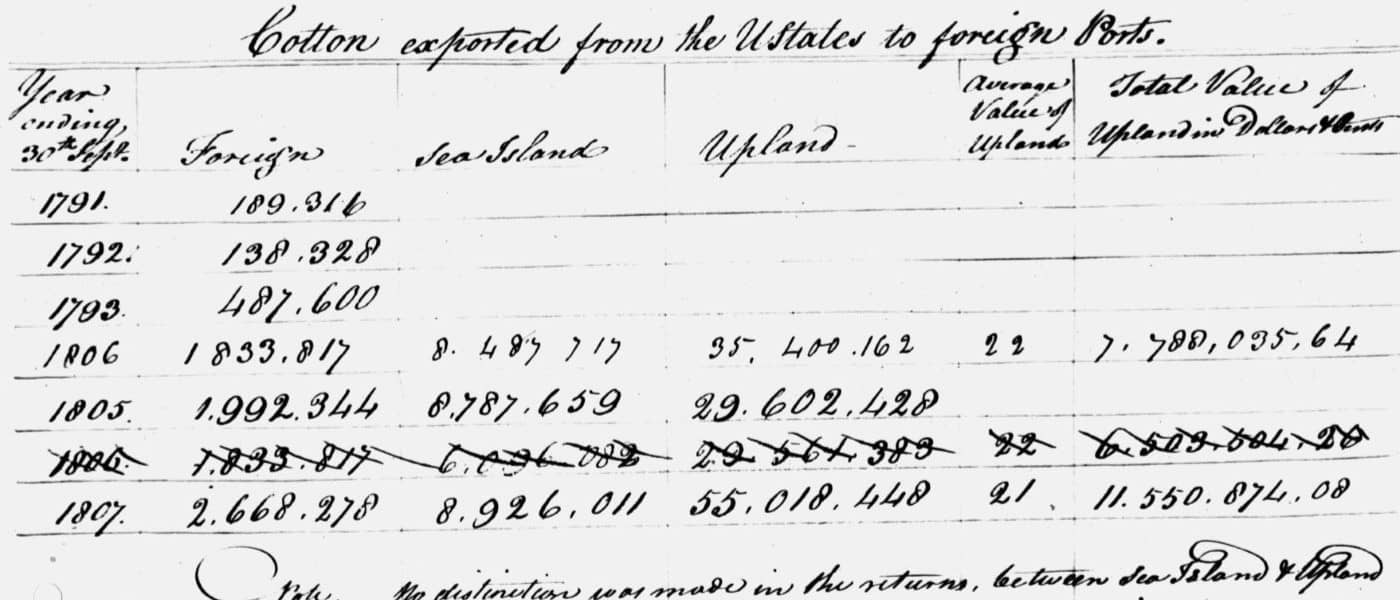 Cotton exported from the UStates to foreign Ports.
Year ending, 30th Sept. Foreign Sea Island Upland Average Value of Upland Total Value of Upland in Dollars & Cents
1791. 189.316
1792. 138.328
1793. 487.600
1806 1833.817 8. 487 717 35. 400.162 22 7. 788,035,64
1805. 1.992.344 8.787.659 29.602.428
1806. 1.833.817 6.096.082 29.561.383 22 6.503.504.26
1807. 2.668.278 8.926.011 55.018.448 21. 11.550.874.08
Note. No distinction was made in the returns, between Sea Island & Upland